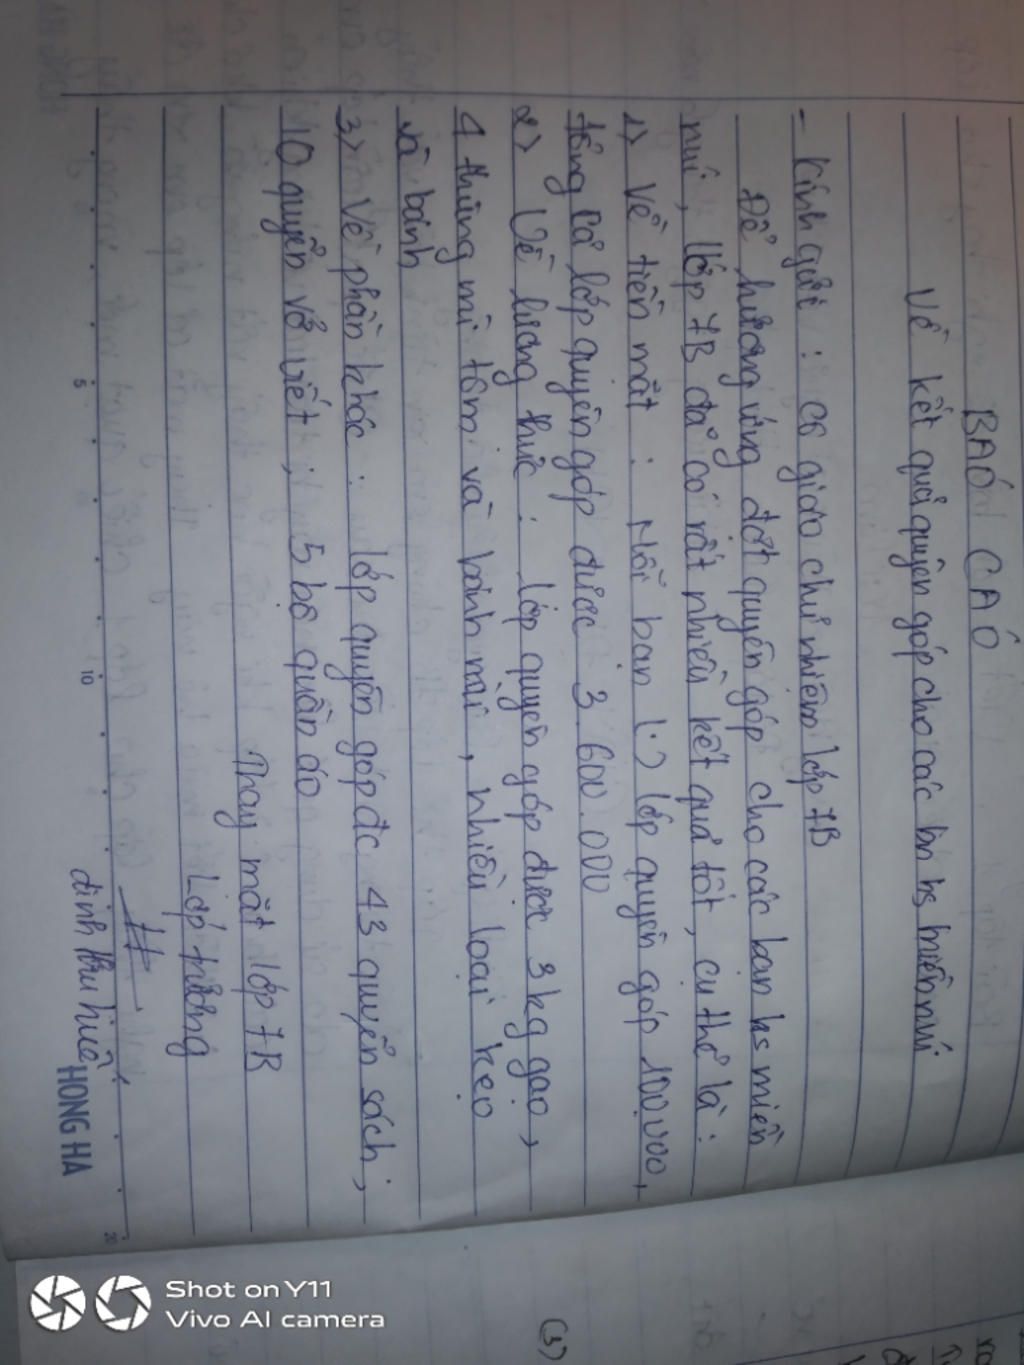 BAÓ CAÓ
Về kết quả quyên góp cho các bn hs miền núi
- Kính gửi : cô giáo chủ nhiệm lớp 7B
Để hưởng ứng đợt quyên góp cho các bạn hs miền
núi, lớp 7B đã có rất nhiều kết quả tốt, cụ thể là :
1) Về tiền mặt : Mỗi bạn (:) lớp quyên góp 100.000,
tổng cả lớp quyên góp được 3.600.000
2) Về lương thực : lớp quyên góp được 3 kg gạo,
4 thùng mì tôm và bánh mì, nhiều loại kẹo
và bánh
3) Về phần khác : lớp quyên góp đc 43 quyển sách ;
10 quyển vở viết ; 5 bộ quần áo
Thay mặt lớp 7B
Lớp trưởng
đinh thu hiền
HONG HA
5
10
20
Shot on Y11
Vivo AI camera
(3)